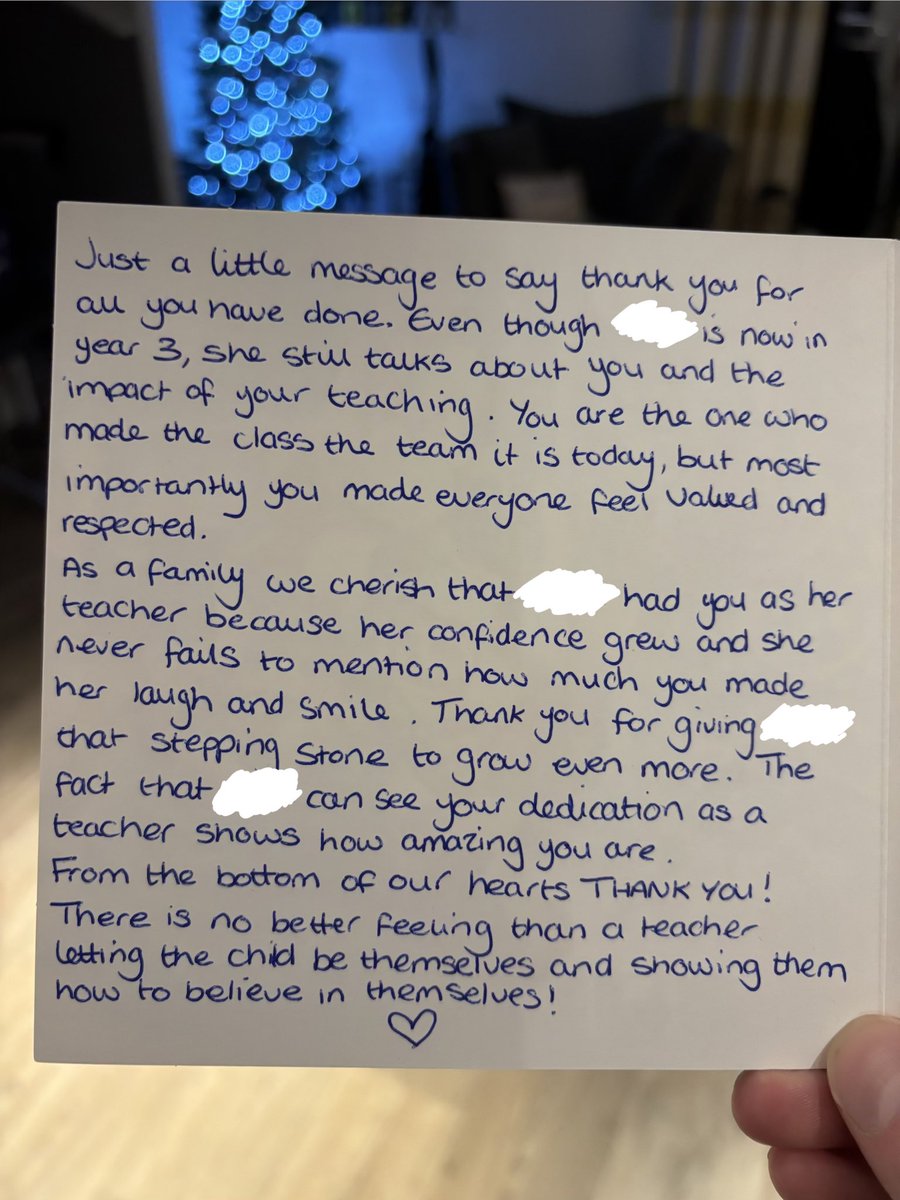 Just a little message to say thank you for
all you have done. Even though is now in
year 3, she still talks about you and the
impact of your teaching. You are the one who
made the class the team it is today, but most
importantly you made everyone feel valued and
respected.
As a family we cherish that had you as her
teacher because her confidence grew and she
never fails to mention how much you made
her laugh and smile. Thank you for giving
that stepping stone to grow even more. The
fact that can see your dedication as a
teacher shows how amazing you are.
From the bottom of our hearts THANK YOU!
There is no better feeling than a teacher
letting the child be themselves and showing them
how to believe in themselves!